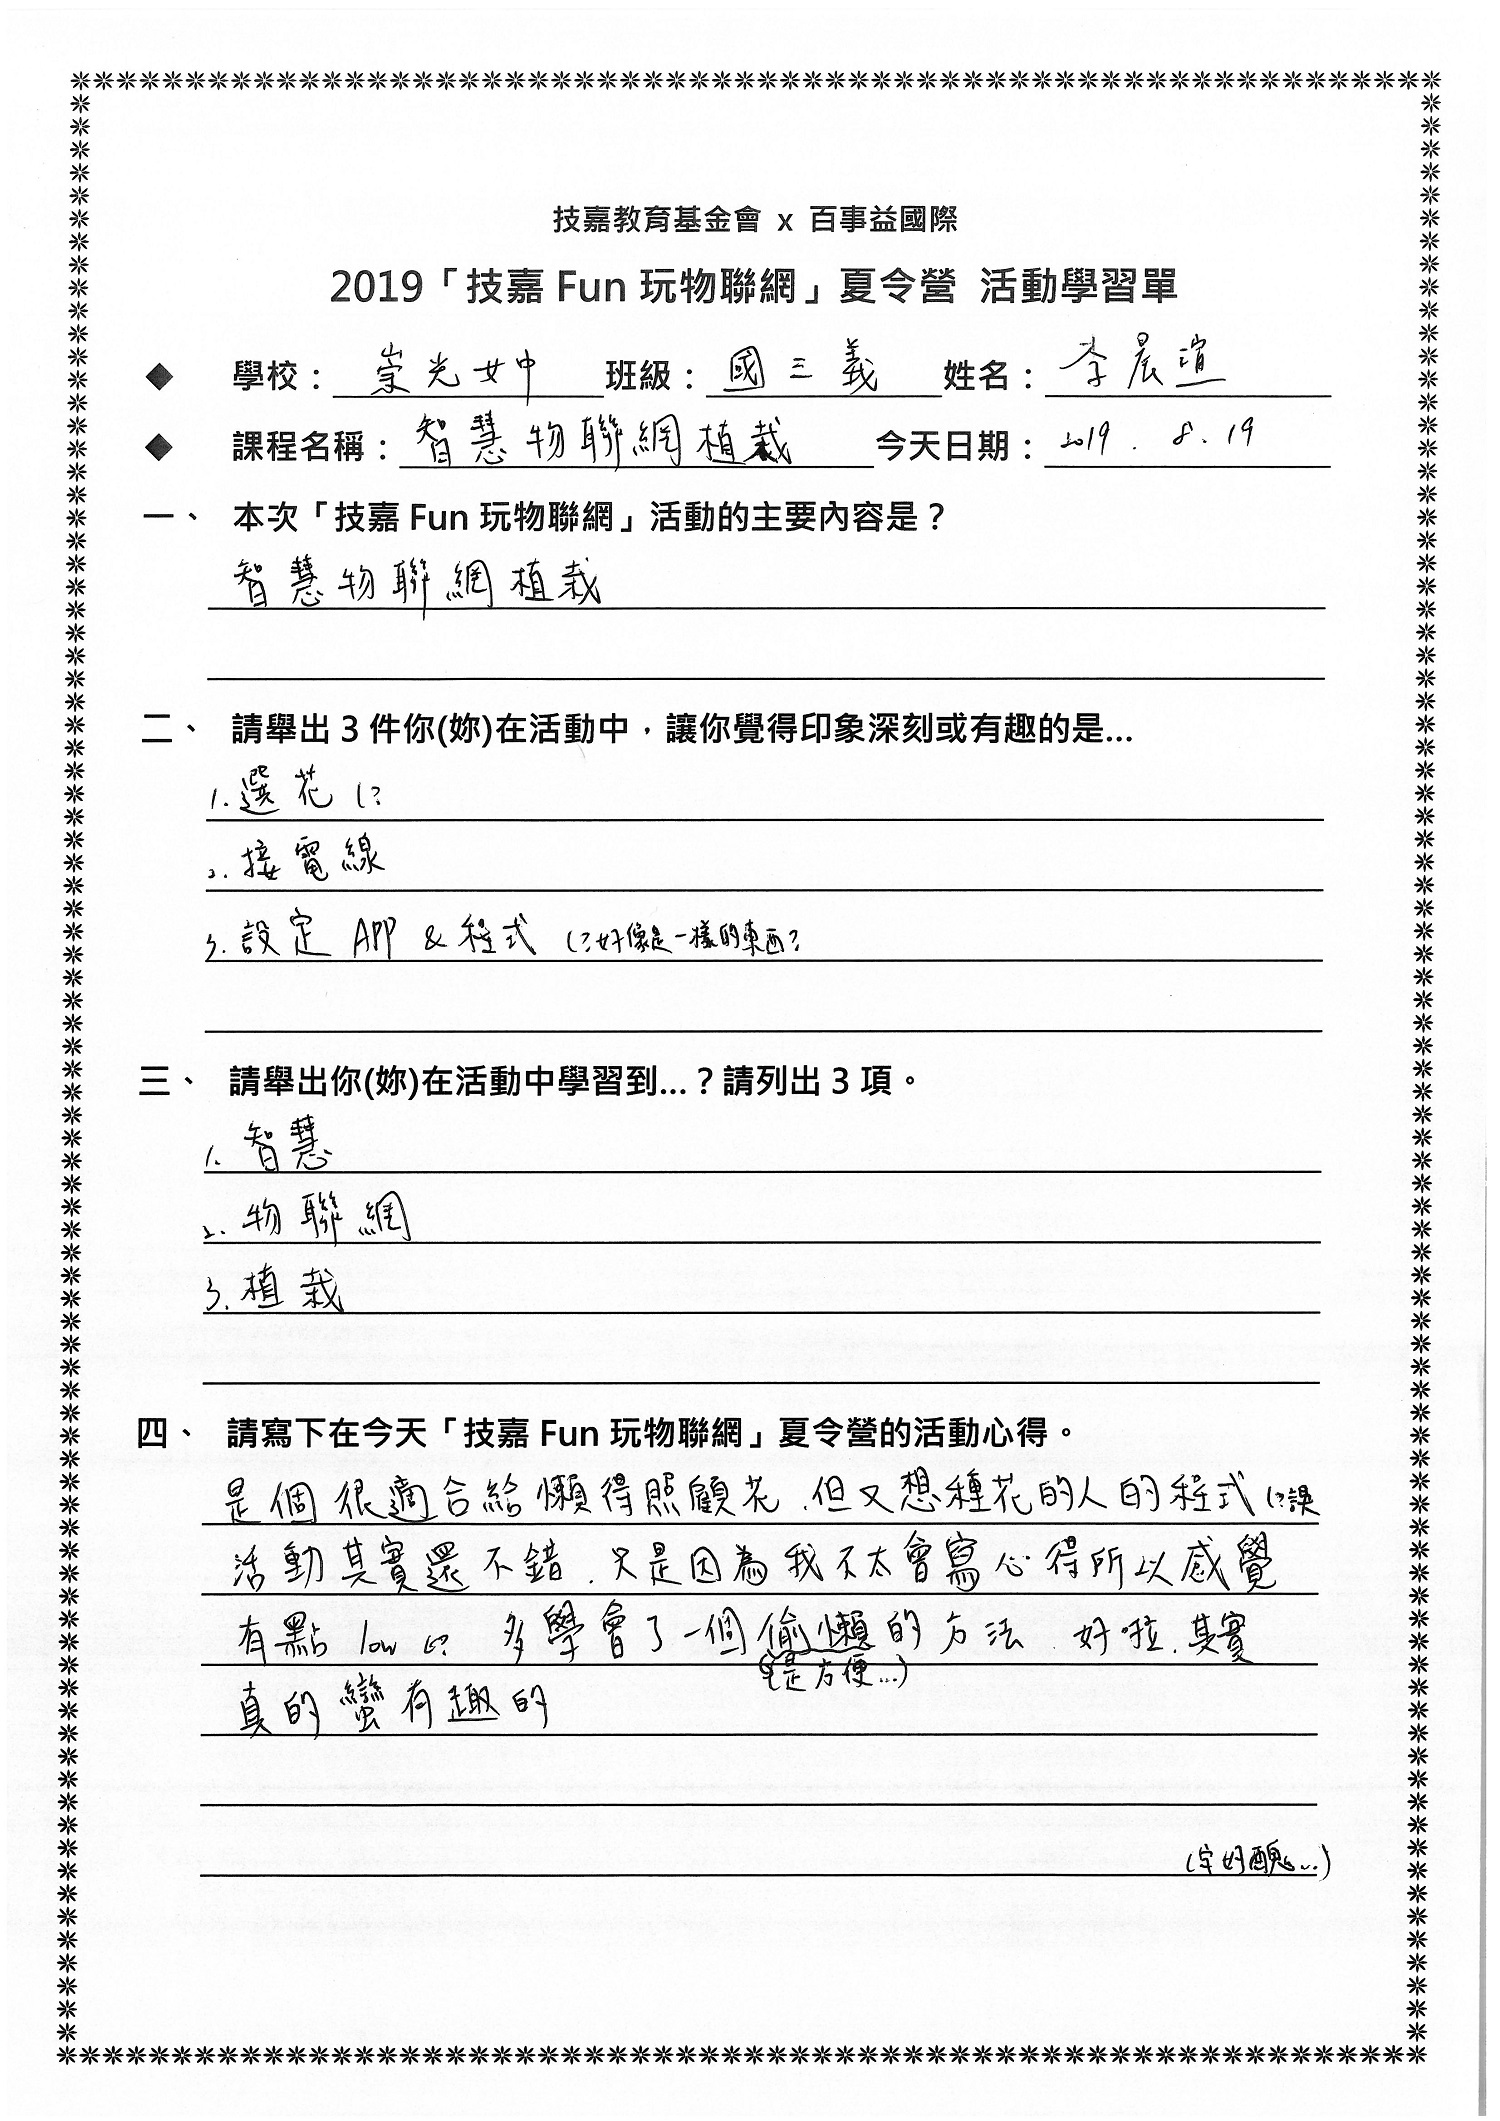 技嘉教育基金會 x 百事益國際
2019「技嘉 Fun 玩物聯網」夏令營 活動學習單
◆ 學校：崇光女中 班級：國三義 姓名：李晨瑄
◆ 課程名稱：智慧物聯網植栽 今天日期：2019.8.19
一、 本次「技嘉 Fun 玩物聯網」活動的主要內容是？
智慧物聯網植栽
二、 請舉出 3 件你(妳)在活動中，讓你覺得印象深刻或有趣的是…
1. 選花 (?
2. 接電線
3. 設定 APP & 程式 (?好像是一樣的東西?
三、 請舉出你(妳)在活動中學習到…？請列出 3 項。
1. 智慧
2. 物聯網
3. 植栽
四、 請寫下在今天「技嘉 Fun 玩物聯網」夏令營的活動心得。
是個很適合給懶得照顧花.但又想種花的人的程式(?誤
活動其實還不錯.只是因為我不太會寫心得所以感覺
有點 low (? 多學會了一個偷懶的方法.好啦.其實
(是方便...)
真的蠻有趣的
(字好醜...)